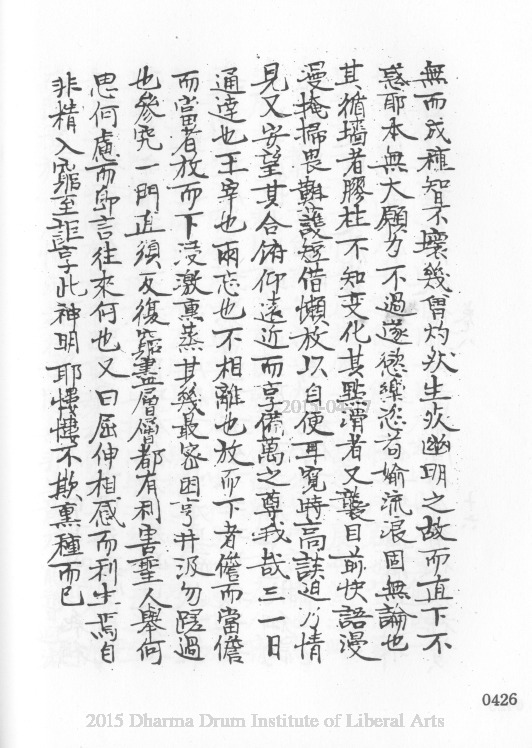 無而成種智不壞幾曾灼然生死幽明之故而直下不
惑耶本無大願力不過遂慾樂恣苟媮流浪固無論也
其循墻者膠柱不知变化其點滑者又襲目前快語漫
漫掩掃畏難護短借懶放以自便耳覓時高談迫乃情
見又安望其合俯仰遠近而享備萬之尊我哉三一日
通達也王宰也兩忘也不相離也放而下者儋而當儋
而當者放而下浸激熏蒸其幾最密困亨井汲勿隍過
也參究一門直須反復窮盡層層都有利害聖人舉何
思何慮而即言往來何也又曰屈伸相感而利生焉自
非精入窮至詎享此神明耶慺慺不欺熏種而已
2015-04-07
0426
2015 Dharma Drum Institute of Liberal Arts